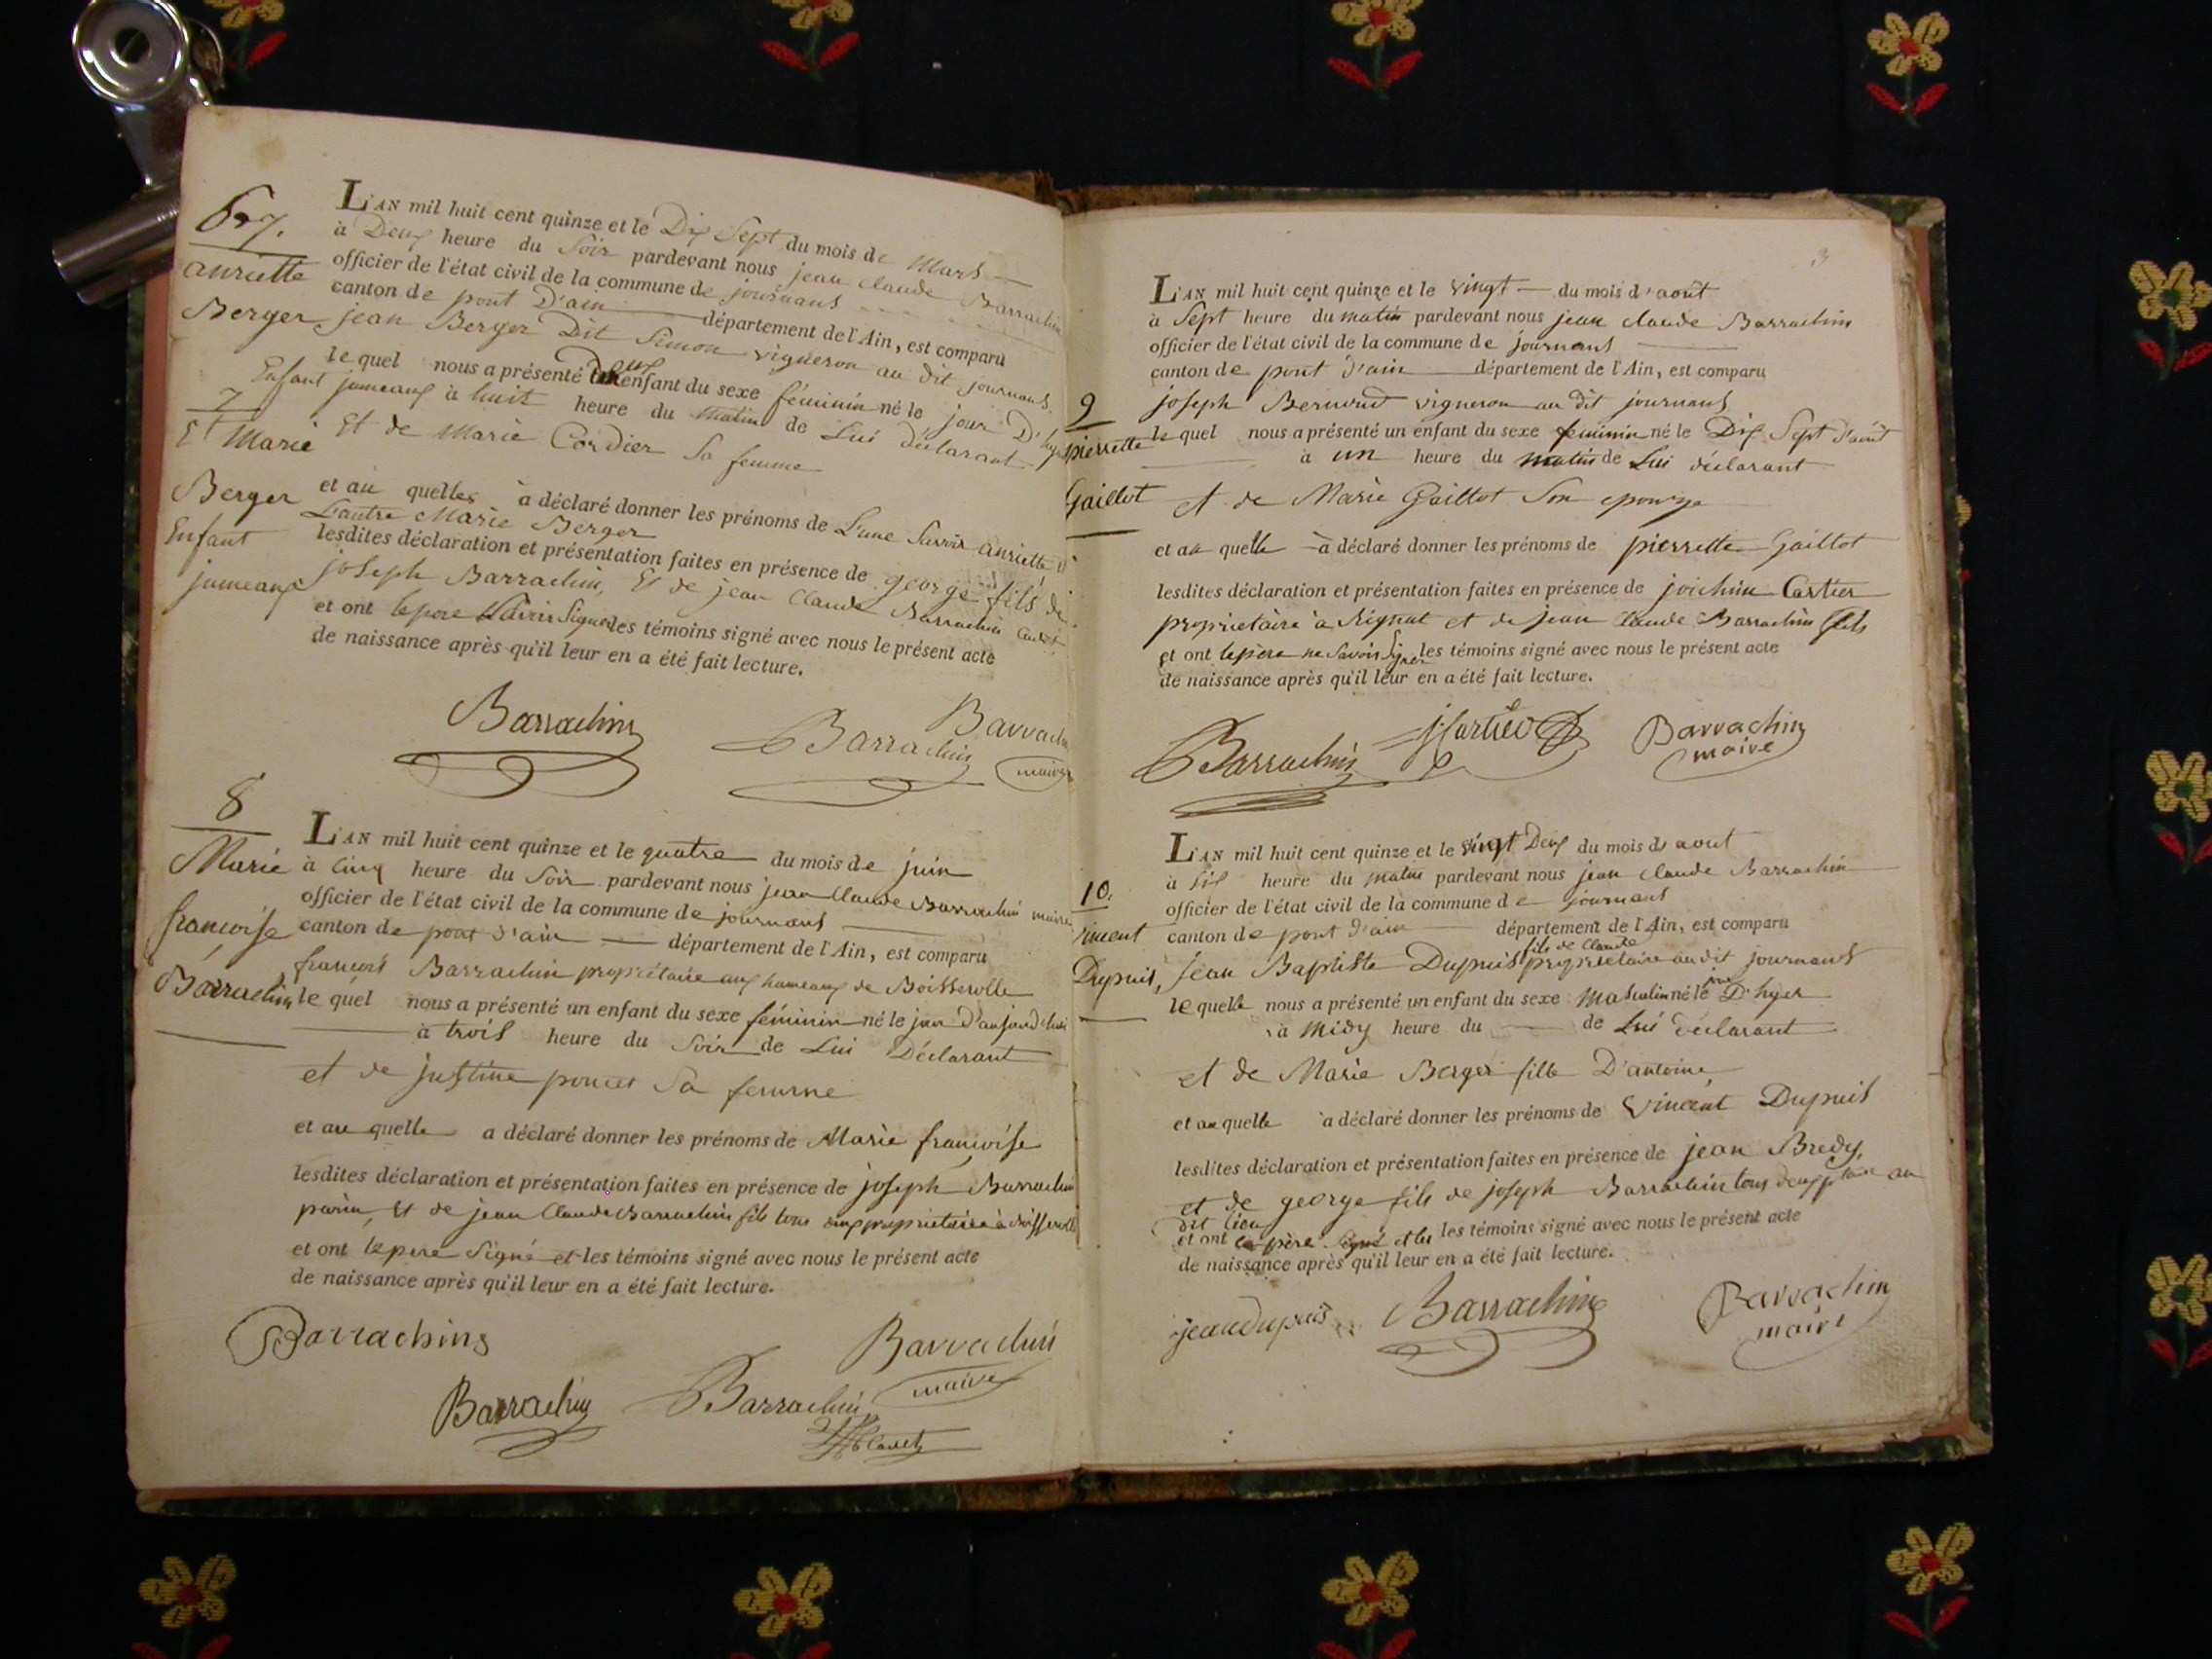 6 7.
anriette
Berger
7
Et Marie
Berger
Enfant
jumeaux
L'AN mil huit cent quinze et le Dix Sept du mois de Mars
à Deux heure du Soir pardevant nous jean claude Barrachin
officier de l'état civil de la commune de journans
canton de pont D'ain département de l'Ain, est comparu
jean Berger Dit Simon vigneron au dit journans
le quel nous a présenté Deux enfant du sexe féminin né le jour D'hyer
Enfant jumeaux à huit heure du matin de Lui déclarant
Et de Marie Cordier Sa femme
et au quelles a déclaré donner les prénoms de L'une Savoir anriette
L'autre Marie Berger
lesdites déclaration et présentation faites en présence de george fils de
joseph Barrachin, Et de jean Claude Barrachin
et ont le pere Savoir Signer les témoins signé avec nous le présent acte
de naissance après qu'il leur en a été fait lecture.
Barrachin Barrachin Barrachin
maire
8
Marie
françoise
Barrachin
L'AN mil huit cent quinze et le quatre du mois de juin
à Cinq heure du Soir pardevant nous jean Claude Barrachin maire
officier de l'état civil de la commune de journans
canton de pont d'ain département de l'Ain, est comparu
françois Barrachin propriétaire aux hameaux de Boisserolle
le quel nous a présenté un enfant du sexe féminin né le jour D'aujourd'hui
à trois heure du Soir de Lui Déclarant
et de justine poncet Sa femme
et au quelle a déclaré donner les prénoms de Marie françoise
lesdites déclaration et présentation faites en présence de joseph Barrachin
parin, Et de jean Claude Barrachin fils tous deux propriétaire à Boisserolle
et ont le pere Signé et les témoins signé avec nous le présent acte
de naissance après qu'il leur en a été fait lecture.
Barrachins
Barrachin
maire
Barrachin Barrachin
3
9
pierrette
Gaillot
L'AN mil huit cent quinze et le vingt du mois d'août
à Sept heure du matin pardevant nous jean claude Barrachin
officier de l'état civil de la commune de journans
canton de pont d'ain département de l'Ain, est comparu
joseph vigneron au dit journans
le quel nous a présenté un enfant du sexe feminin né le Dix Sept d'août
à un heure du matin de Lui déclarant
et de Marie Gaillot Son epouze
et au quelle a déclaré donner les prénoms de pierrette Gaillot
lesdites déclaration et présentation faites en présence de joichim Cartier
proprietaire à Rignat et de jean claude Barrachin fils
et ont le pere ne Savoir Signer les témoins signé avec nous le présent acte
de naissance après qu'il leur en a été fait lecture.
Barrachin Cartier Barrachin
maire
10.
Vincent
Dupuis,
L'AN mil huit cent quinze et le vingt Deux du mois de aout
à Six heure du matin pardevant nous jean claude Barrachin
officier de l'état civil de la commune de journans
canton de pont d'ain département de l'Ain, est comparu
fils de Claude
Jean Baptiste Dupuis proprietaire au dit journans
le quelle nous a présenté un enfant du sexe masculin né le jour D'hyer
à midy heure du de Lui déclarant
et de Marie Berger fille D'antoine
et au quelle a déclaré donner les prénoms de Vincent Dupuis
lesdites déclaration et présentation faites en présence de jean Bredy,
et de george fils de joseph Barrachin tous deux ptaire au
dit lieu
et ont le père Signé et les les témoins signé avec nous le présent acte
de naissance après qu'il leur en a été fait lecture.
jean dupuis Barrachin Barrachin
maire